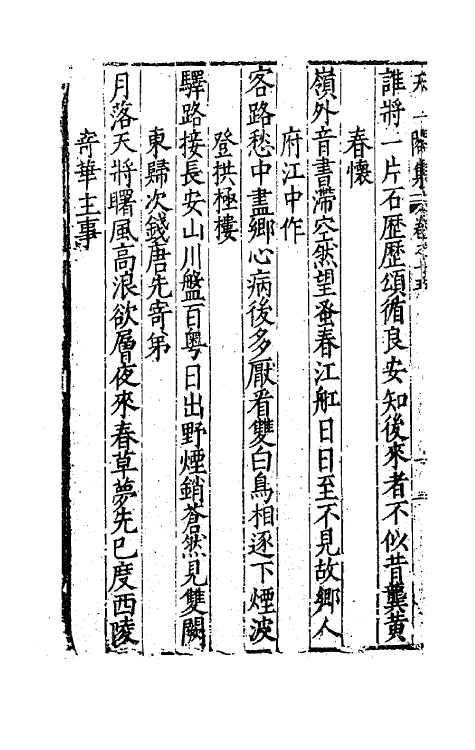 天一閣集 卷之十五
誰將一片石歷歷頌循良安知後來者不似昔龔黃
春懷
嶺外音書滯空然望蚤春江舡日日至不見故鄉人
府江中作
客路愁中盡鄉心病後多厭看雙白鳥相逐下煙波
登拱極樓
驛路接長安山川盤百粵日出野煙銷蒼然見雙闕
東歸次錢唐先寄弟
月落天將曙風高浪欲層夜來春草夢先已度西陵
寄華主事